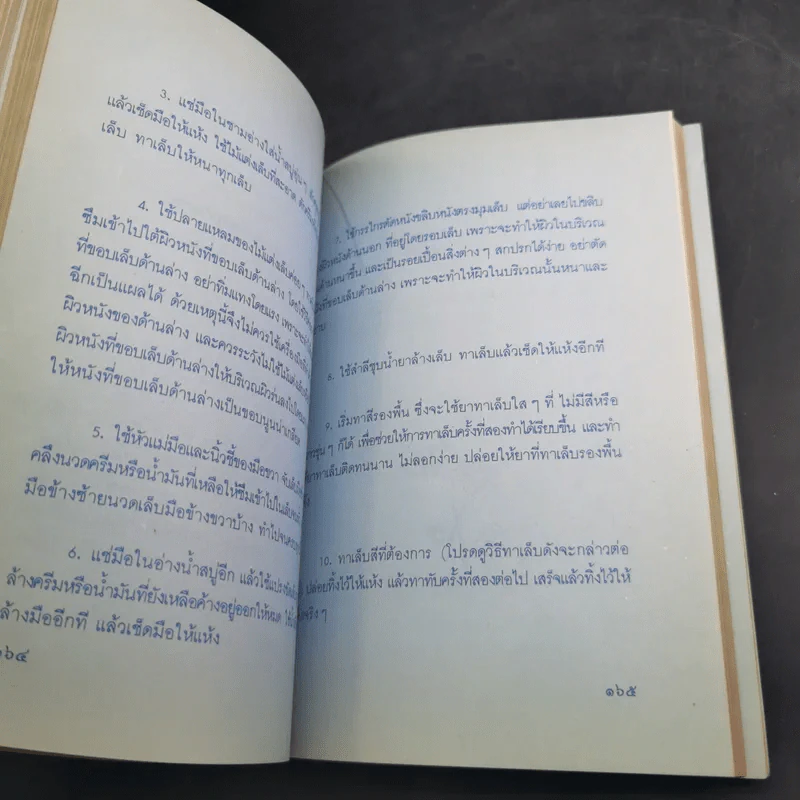 3. แช่มือในชามอ่างใส่น้ำสบู่อุ่น ๆ
แล้วเช็ดมือให้แห้ง ใช้ไม้แต่งเล็บที่สะอาด
เล็บ ทาเล็บให้หนาทุกเล็บ
4. ใช้ปลายแหลมของไม้แต่งเล็บค่อย ๆ
ซึมเข้าไปใต้ผิวหนังที่ขอบเล็บด้านล่าง โดย
ที่ขอบเล็บด้านล่าง อย่าทิ่มแทงโดยแรง เพราะจะ
ฉีกเป็นแผลได้ ด้วยเหตุนี้จึงไม่ควรใช้เครื่องมือ
ผิวหนังของด้านล่าง และควรระวังไม่ใช้ไม้แต่งเล็บ
ผิวหนังที่ขอบเล็บด้านล่างให้บริเวณผิวร่นลงไป
ให้หนังที่ขอบเล็บด้านล่างเป็นขอบนูนน่าเกลียด
5. ใช้หัวแม่มือและนิ้วชี้ของมือขวา จับเล็บ
คลึงนวดครีมหรือน้ำมันที่เหลือให้ซึมเข้าไปในเล็บ
มือข้างซ้ายนวดเล็บมือข้างขวาบ้าง ทำไปจนครบ
6. แช่มือในอ่างน้ำสบู่อีก แล้วใช้แปรง
ล้างครีมหรือน้ำมันที่ยังเหลือค้างอยู่ออกให้หมด
ล้างมืออีกที แล้วเช็ดมือให้แห้ง
๑๖๔
7. ใช้กรรไกรตัดหนังขลิบหนังตรงมุมเล็บ แต่อย่าเลยไปขลิบ
ผิวหนังด้านนอก ที่อยู่โดยรอบเล็บ เพราะจะทำให้ผิวในบริเวณ
ด้านหนาขึ้น และเป็นรอยเปื้อนสิ่งต่าง ๆ สกปรกได้ง่าย อย่าตัด
ที่ขอบเล็บด้านล่าง เพราะจะทำให้ผิวในบริเวณนั้นหนาและ
8. ใช้สำลีชุบน้ำยาล้างเล็บ ทาเล็บแล้วเช็ดให้แห้งอีกที
9. เริ่มทาสีรองพื้น ซึ่งจะใช้ยาทาเล็บใส ๆ ที่ ไม่มีสีหรือ
ๆ ก็ได้ เพื่อช่วยให้การทาเล็บครั้งที่สองทำได้เรียบขึ้น และทำ
ยาทาเล็บติดทนนาน ไม่ลอกง่าย ปล่อยให้ยาที่ทาเล็บรองพื้น
10. ทาเล็บสีที่ต้องการ (โปรดดูวิธีทาเล็บดังจะกล่าวต่อ
ปล่อยทิ้งไว้ให้แห้ง แล้วทาทับครั้งที่สองต่อไป เสร็จแล้วทิ้งไว้ให้
จริง ๆ
๑๖๕